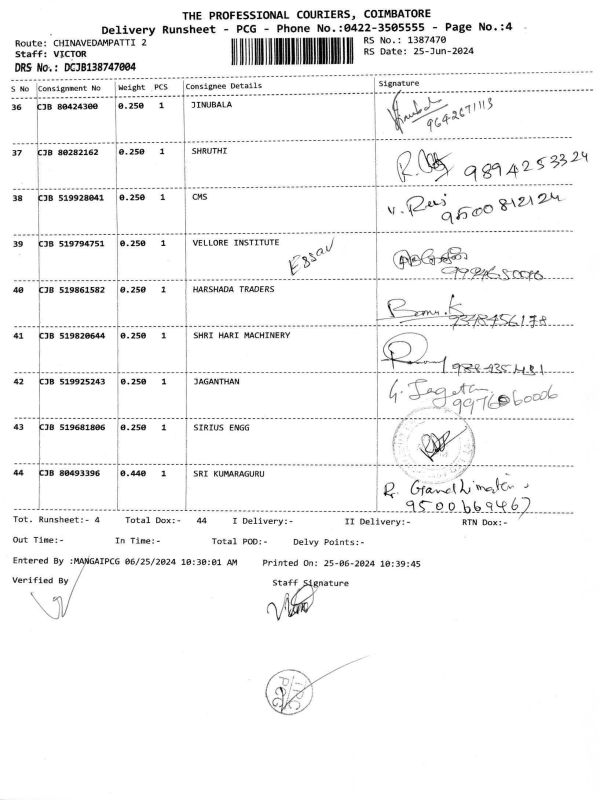 THE PROFESSIONAL COURIERS, COIMBATORE
Delivery Runsheet - PCG - Phone No.:0422-3505555 - Page No.:4
Route: CHINAVEDAMPATTI 2 RS No.: 1387470
Staff: VICTOR RS Date: 25-Jun-2024
DRS No.: DCJB138747004
S No Consignment No Weight PCS Consignee Details Signature
36 CJB 80424300 0.250 1 JINUBALA Jinubala
9642671113
37 CJB 80282162 0.250 1 SHRUTHI R. 9894253324
38 CJB 519928041 0.250 1 CMS V. Ravi
9500812124
39 CJB 519794751 0.250 1 VELLORE INSTITUTE Essav
40 CJB 519861582 0.250 1 HARSHADA TRADERS
41 CJB 519820644 0.250 1 SHRI HARI MACHINERY
42 CJB 519925243 0.250 1 JAGANTHAN G. Jagatn
43 CJB 519681806 0.250 1 SIRIUS ENGG
44 CJB 80493396 0.440 1 SRI KUMARAGURU R. Gandhimathi
9500669467
Tot. Runsheet:- 4 Total Dox:- 44 I Delivery:- II Delivery:- RTN Dox:-
Out Time:- In Time:- Total POD:- Delvy Points:-
Entered By :MANGAIPCG 06/25/2024 10:30:01 AM Printed On: 25-06-2024 10:39:45
Verified By Staff Signature
PCG